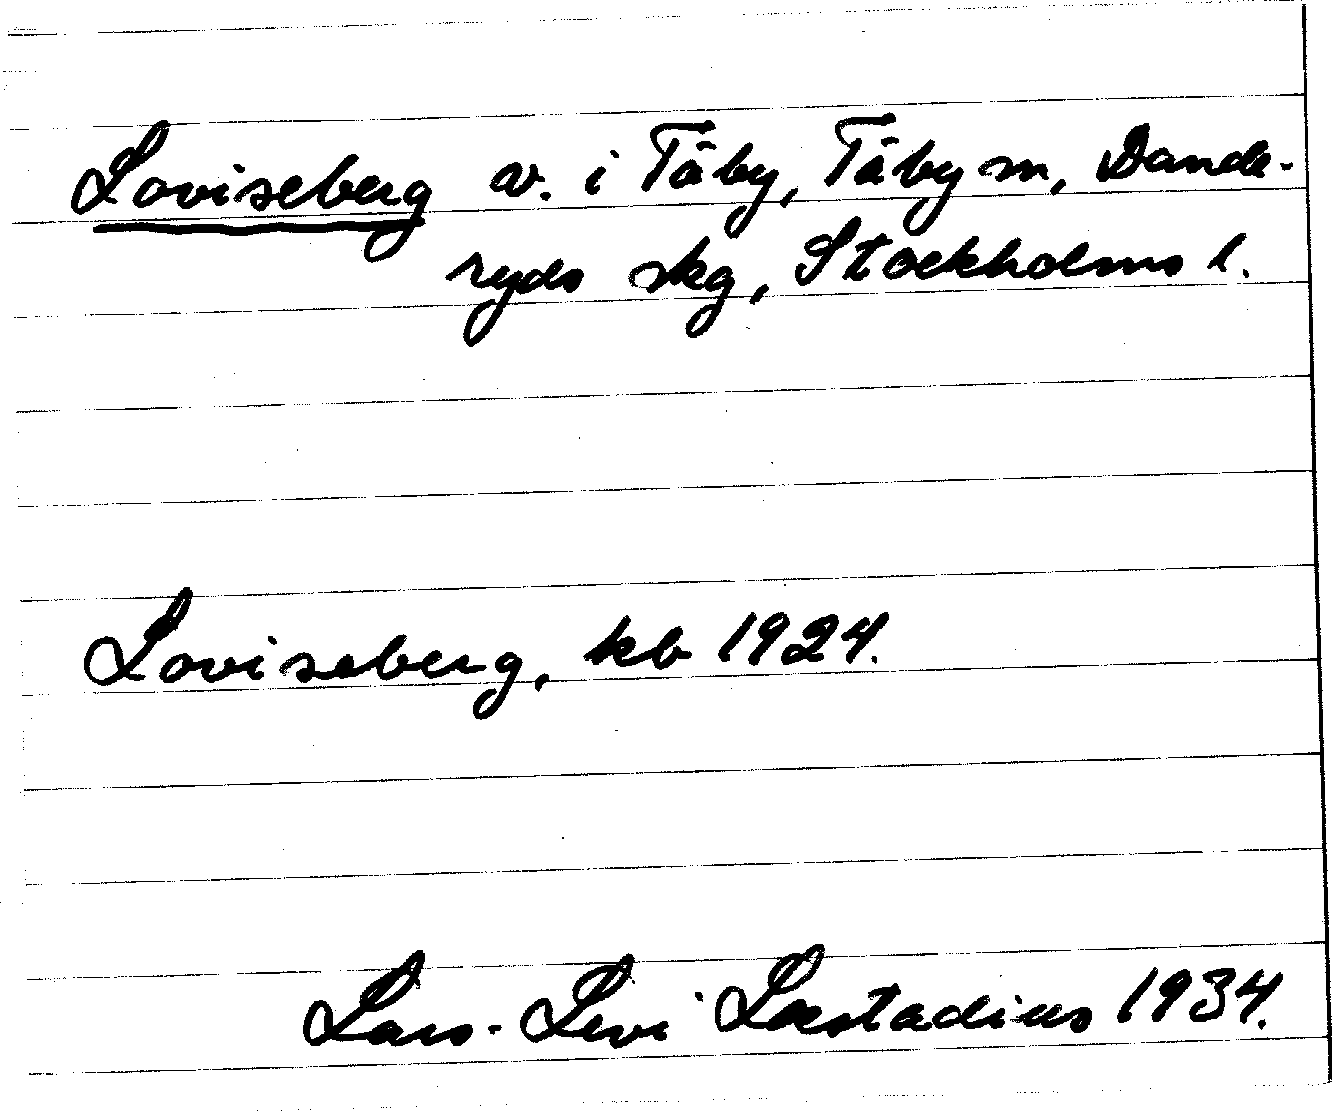 Loviseberg v. i Täby, Täby sn, Dande-
ryds skg, Stockholms l.
Loviseberg, kb 1924.
Lars-Levi Læstadius 1934.